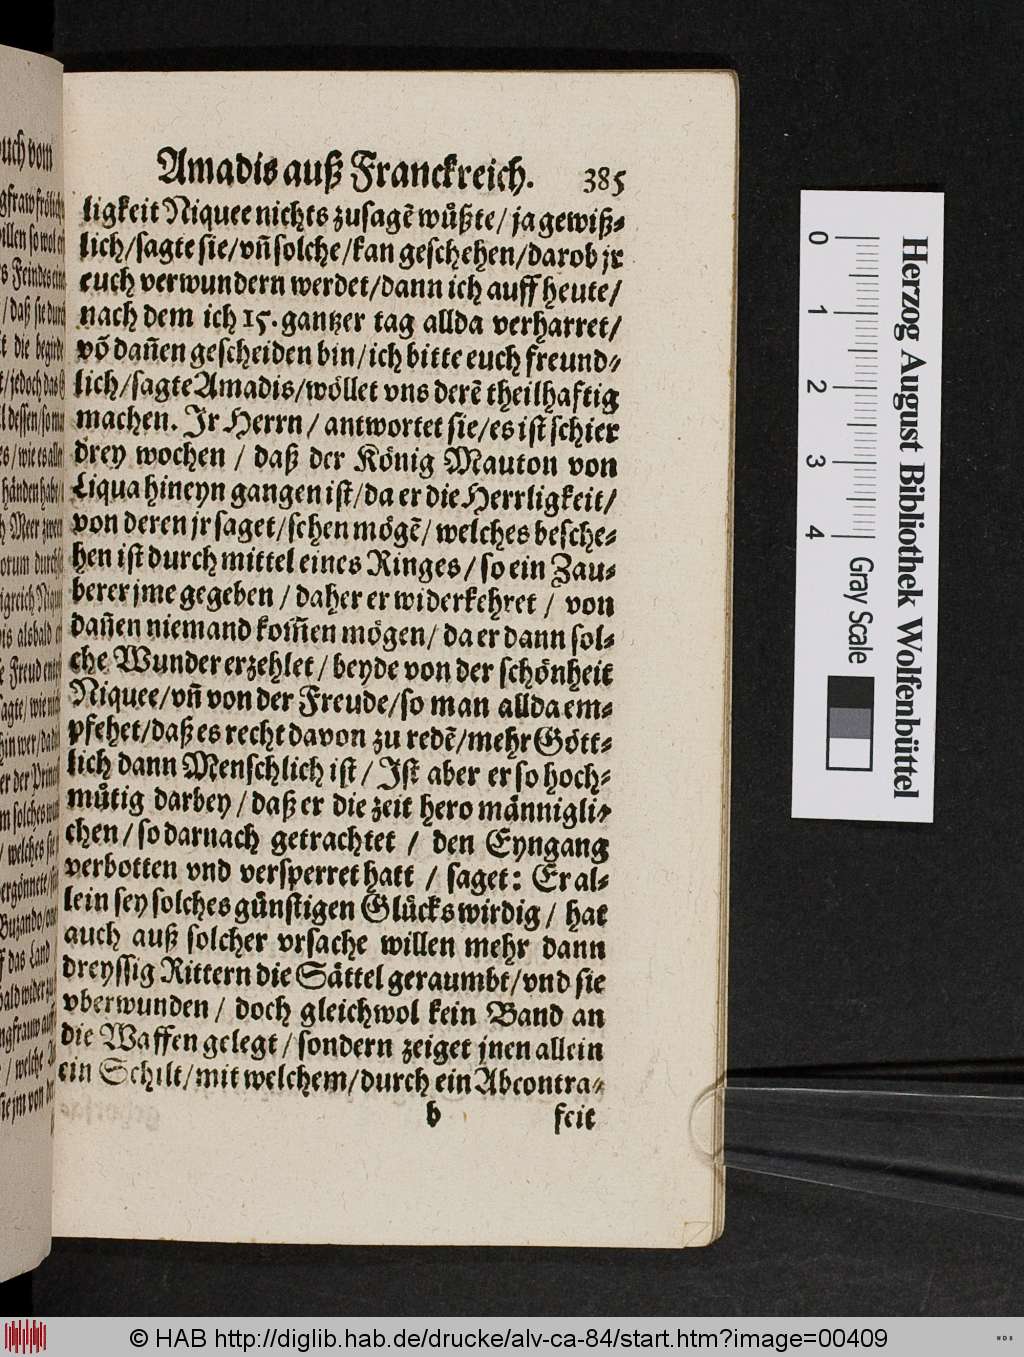 Amadis auß Franckreich. 385
ligkeit Niquee nichts zusagẽ wůßte/ ja gewiß⸗
lich/sagte sie/vñ solche/kan geschehen/darob jr
euch verwundern werdet/dann ich auff heute/
nach dem ich 15. gantzer tag allda verharret/
võ dañen gescheiden bin/ich bitte euch freund⸗
lich/sagte Amadis/wöllet vns derẽ theilhaftig
machen. Jr Herrn/ antwortet sie/es ist schier
drey wochen / daß der König Mauton von
Liqua hineyn gangen ist/da er die Herrligkeit/
von deren jr saget/sehen mögẽ/ welches besche⸗
hen ist durch mittel eines Ringes/ so ein Zau⸗
berer jme gegeben / daher er widerkehret / von
dañen niemand kom̃en mögen/ da er dann sol⸗
che Wunder erzehlet/ beyde von der schönheit
Niquee/vñ von der Freude/so man allda em⸗
pfehet/daß es recht davon zu redẽ/mehr Gött⸗
lich dann Menschlich ist/ Ist aber er so hoch⸗
mütig darbey/ daß er die zeit hero männigli⸗
chen/ so darnach getrachtet / den Eyngang
verbotten vnd versperret hatt / saget: Er al⸗
lein sey solches günstigen Glücks wirdig/ hat
auch auß solcher vrsache willen mehr dann
dreyssig Rittern die Sättel geraumbt/vnd sie
vberwunden/ doch gleichwol kein Band an
die Waffen gelegt/ sondern zeiget jnen allein
ein Schilt/mit welchem/durch ein Abcontra⸗
b feit
uch vom
illen so wol
s Feindes
/ daß sie
t die
/jedoch das
dessen/so
händen habe
Meer zwen
orum
igreich
alsbald
Freud
hin wer/
er der
solches
/ welches sie
Buzando/
ff das Land
bald wider
/ welche
sie jm von
Herzog August Bibliothek Wolfenbüttel
0 1 2 3 4
Gray Scale
© HAB http://diglib.hab.de/drucke/alv-ca-84/start.htm?image=00409